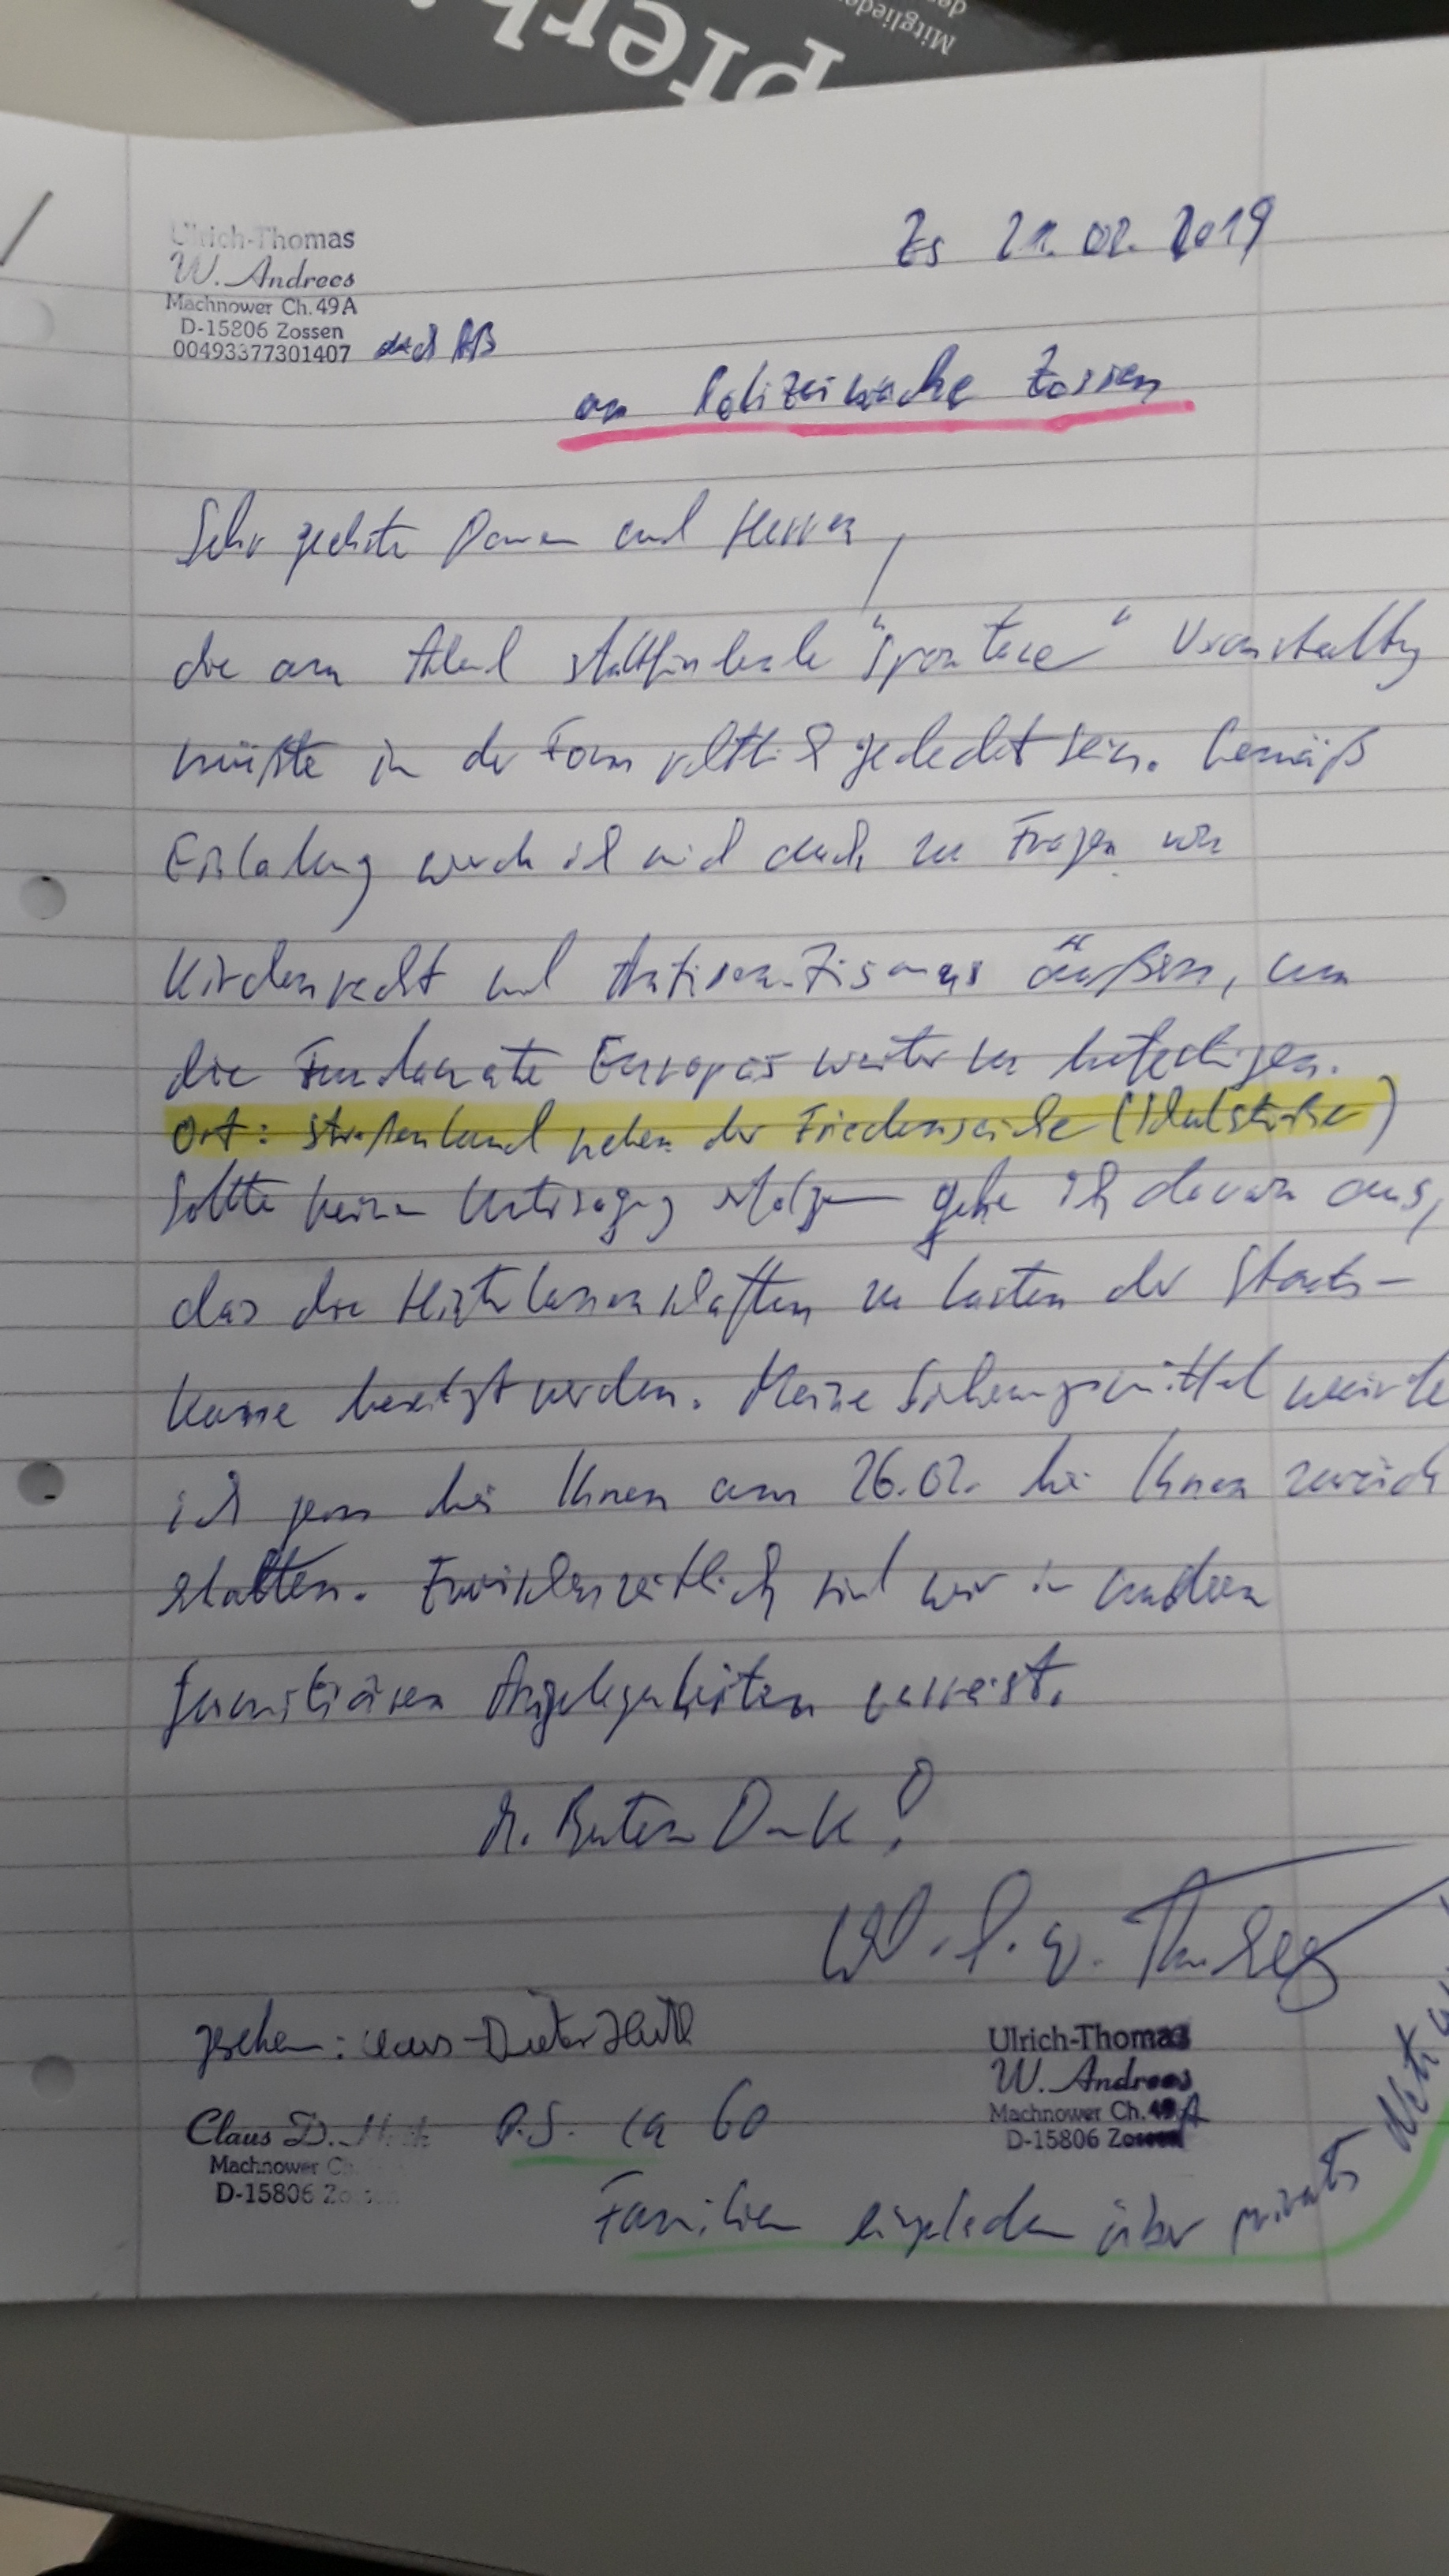 pferk
Mitglieder
der
Ulrich-Thomas
W. Andrees
Machnower Ch. 49A
D-15806 Zossen
00493377301407 auch AB
Zs 21. 02. 2019
an Polizeiwache Zossen
Sehr geehrte Damen und Herren,
die am Abend stattfindende "Spontane" Veranstaltung
müßte in der Form rechtlich gedeckt sein. Gemäß
Einladung werde ich mich auch zu Fragen wie
Kirchenrecht und Antisemitismus äußern, um
die Fundamente Europas weiter zu befestigen.
Ort: Straßenland neben der Friedenseiche (Schulstraße)
Sollte keine Untersagung erfolgen gehe ich davon aus,
das die Hinterlassenschaften zu lasten der Staats-
kasse beseitigt werden. Meine Sicherungsmittel würde
ich gern bei Ihnen am 26.02. bei Ihnen zurück
erhalten. Zwischenzeitlich sind wir in anderen
familiären Angelegenheiten verreist.
Guten Dank!
gesehen: Claus-Dieter
Claus D.
Machnower Ch.
D-15806 Zossen
Ulrich-Thomas
W. Andrees
Machnower Ch. 49 A
D-15806 Zossen
P.S. ca 60
Familien eingeladen über privates